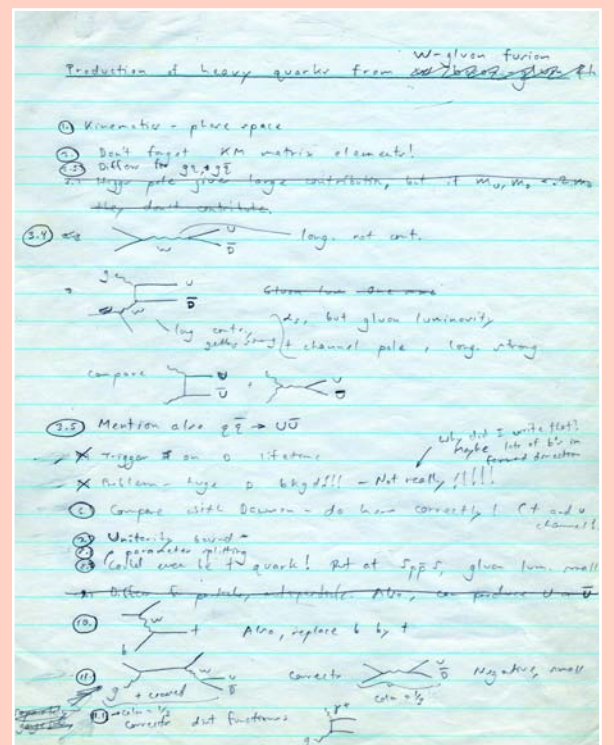 W-gluon fusion
Production of heavy quarks from
1. Kinematics - phase space
2. Don't forget KM matrix elements!
2.5 Differ for gq, g q̄
3.1 Higgs pole gives large contribution, but if
they don't contribute.
3.4 W U D̄ long. not cont.
g U D̄ Gluon lum
long cont, getting strong } αs, but gluon luminosity
t channel pole, long. strong
compare U Ū , U D̄
3.5 Mention also q q̄ → U Ū
Why did I write that?
Maybe lots of b's in
forward direction
X Trigger on D lifetime
X Problem - huge D bkgds!!! - Not really !!!!!
6. Compare with Dawson - do hers correctly! (t and u
channel!
7. Unitarity bound -
8. ρ parameter splitting
Could even be t quark! But at Spp̄S, gluon lum. small
Differ for Also, can produce
10. W b t Also, replace b by t
11. g W U D̄ + crossed corrects U D̄ Negative, small
color = 1/3
11.1 → color = 1/3
corrects dist functions